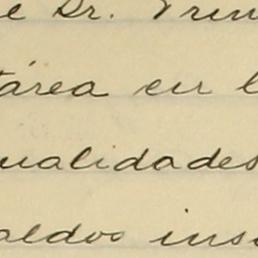 e Dr. Trin
tárea en l
ualidades
aldos ins